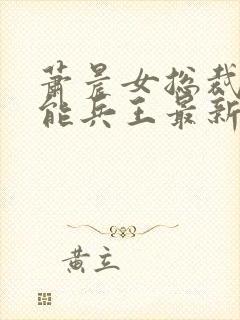 萧晨女总裁
能兵王最新
黄立